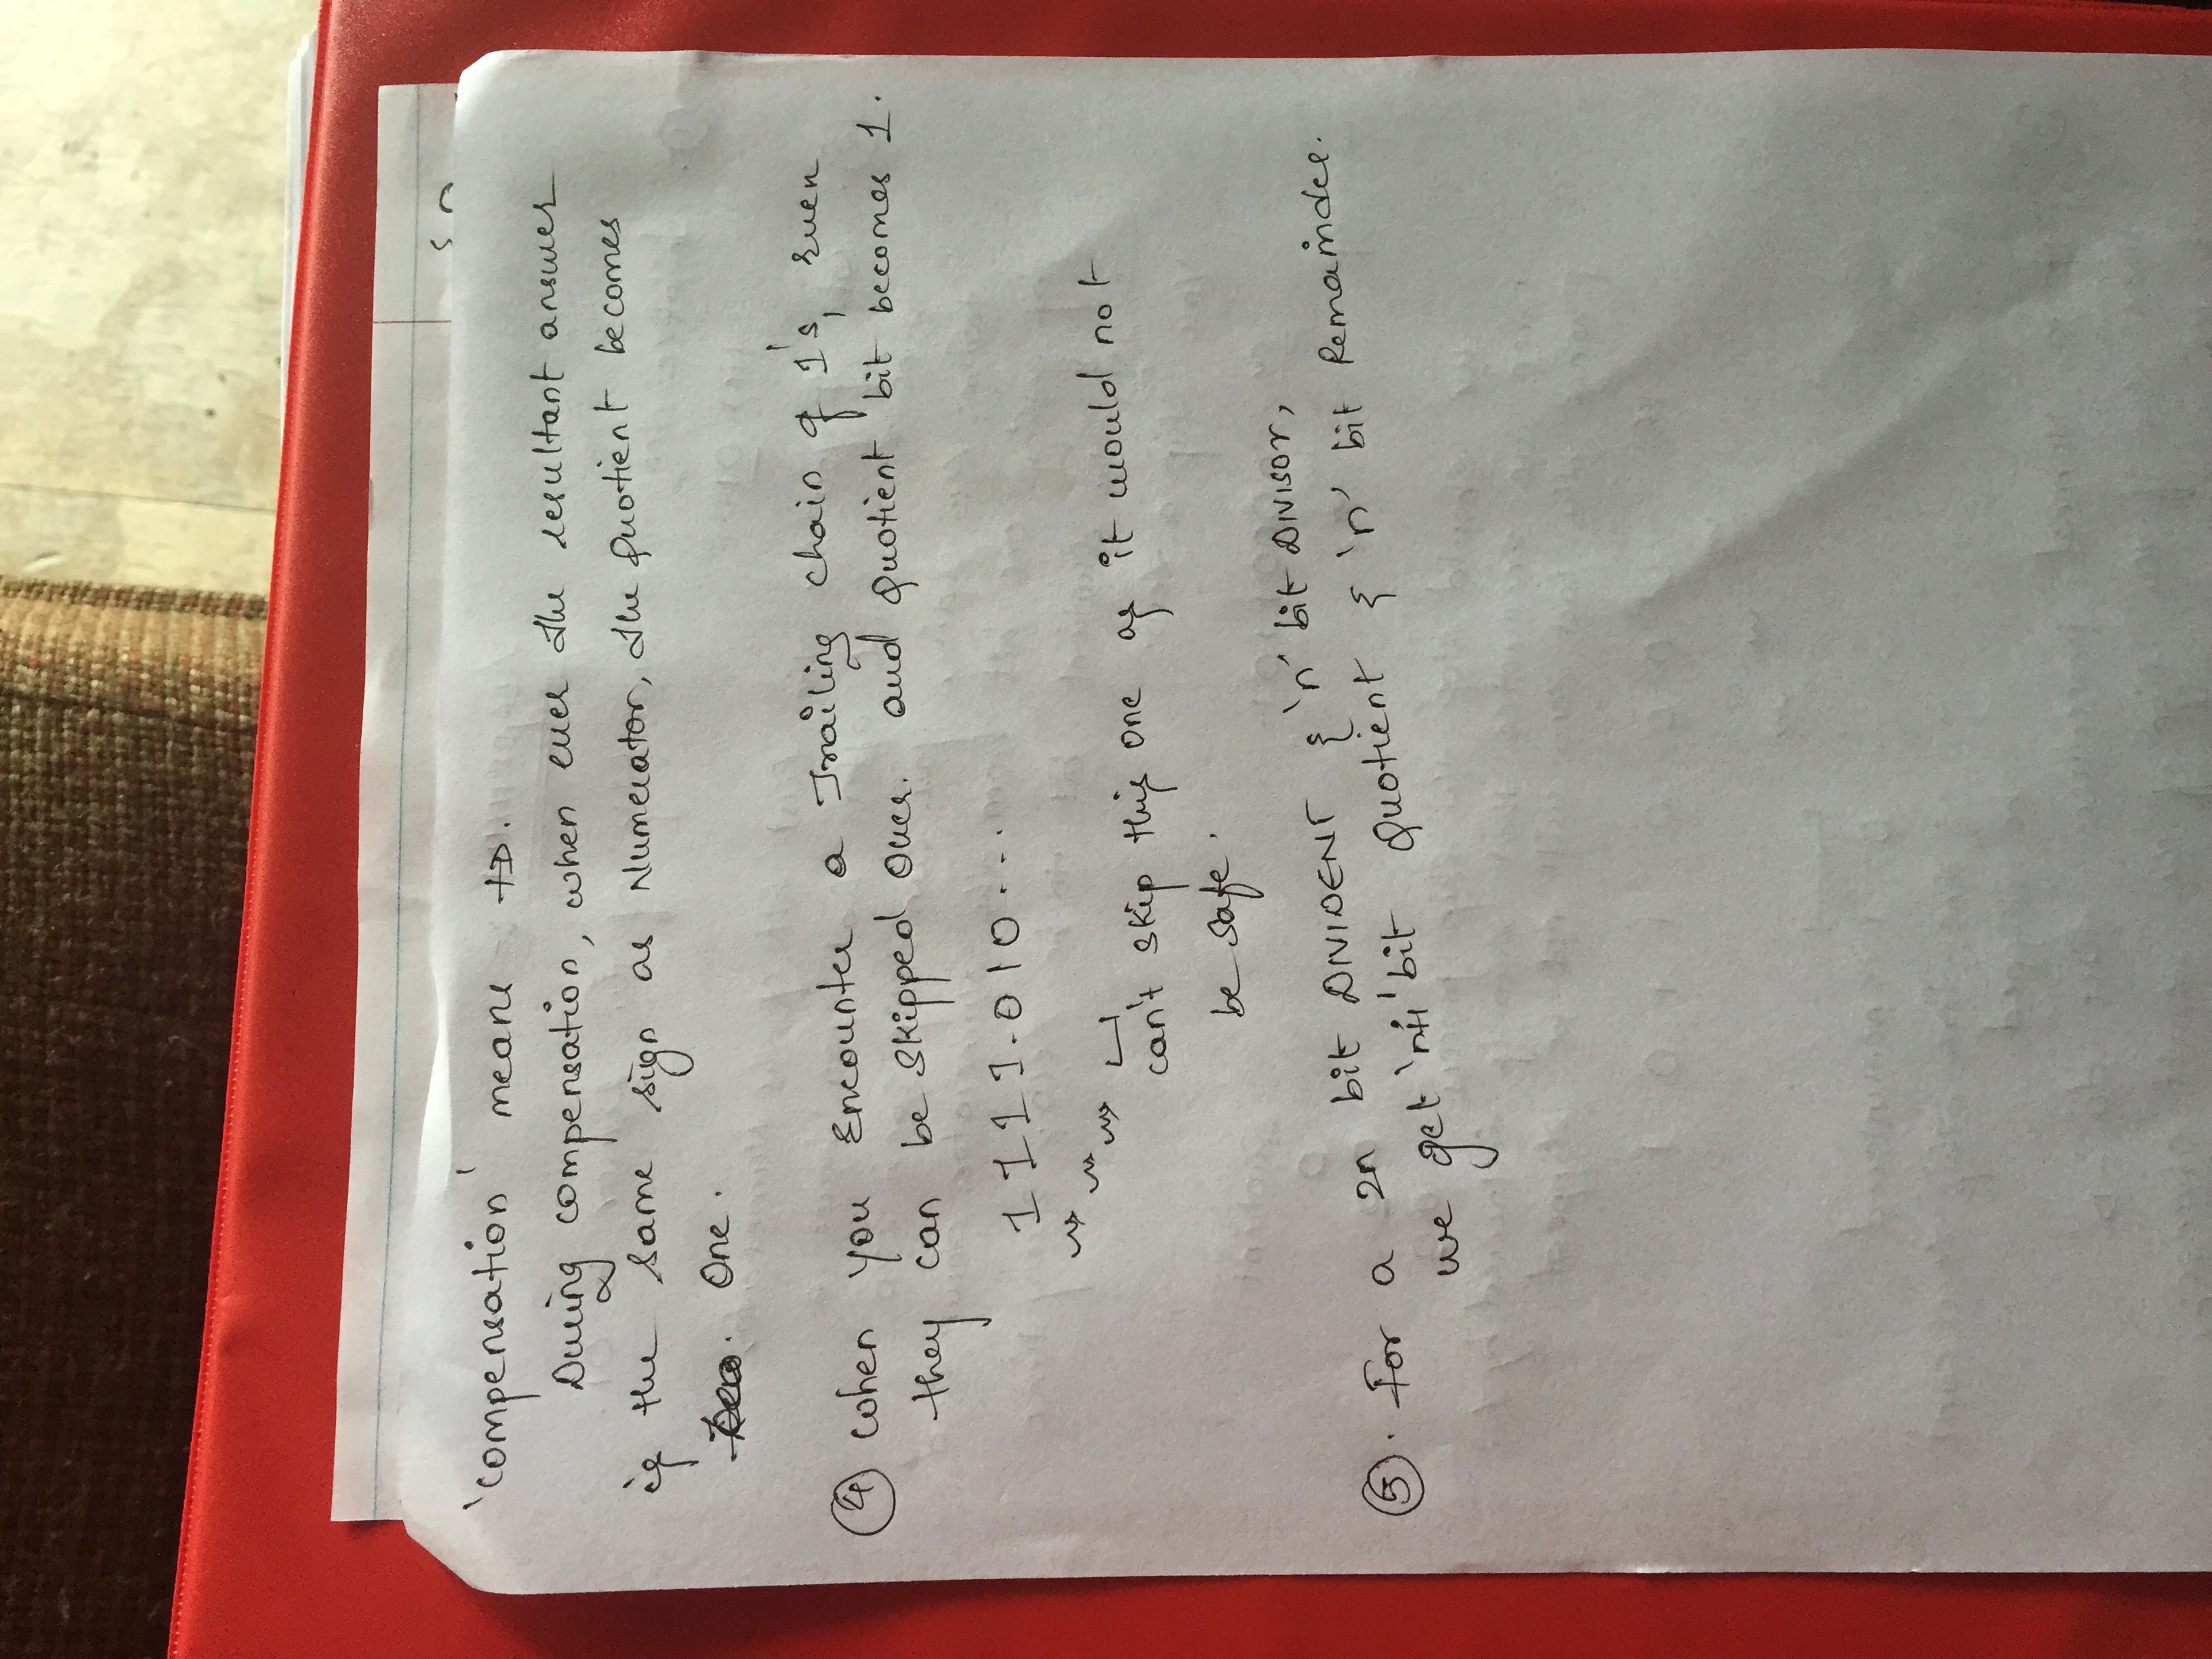 'compensation' means +D.
During compensation, when ever the resultant answer
is the same sign as Numerator, the Quotient becomes
Zero. One.
④ When you Encounter a Trailing chain of 1's, even
they can be skipped over. and Quotient bit becomes 1.
1 1 1 1.010...
can't skip this one as it would not
be safe.
⑤. For a 2n bit DIVIDENT & 'n' bit DIVISOR,
we get 'n+1' bit Quotient & 'n' bit Remainder.